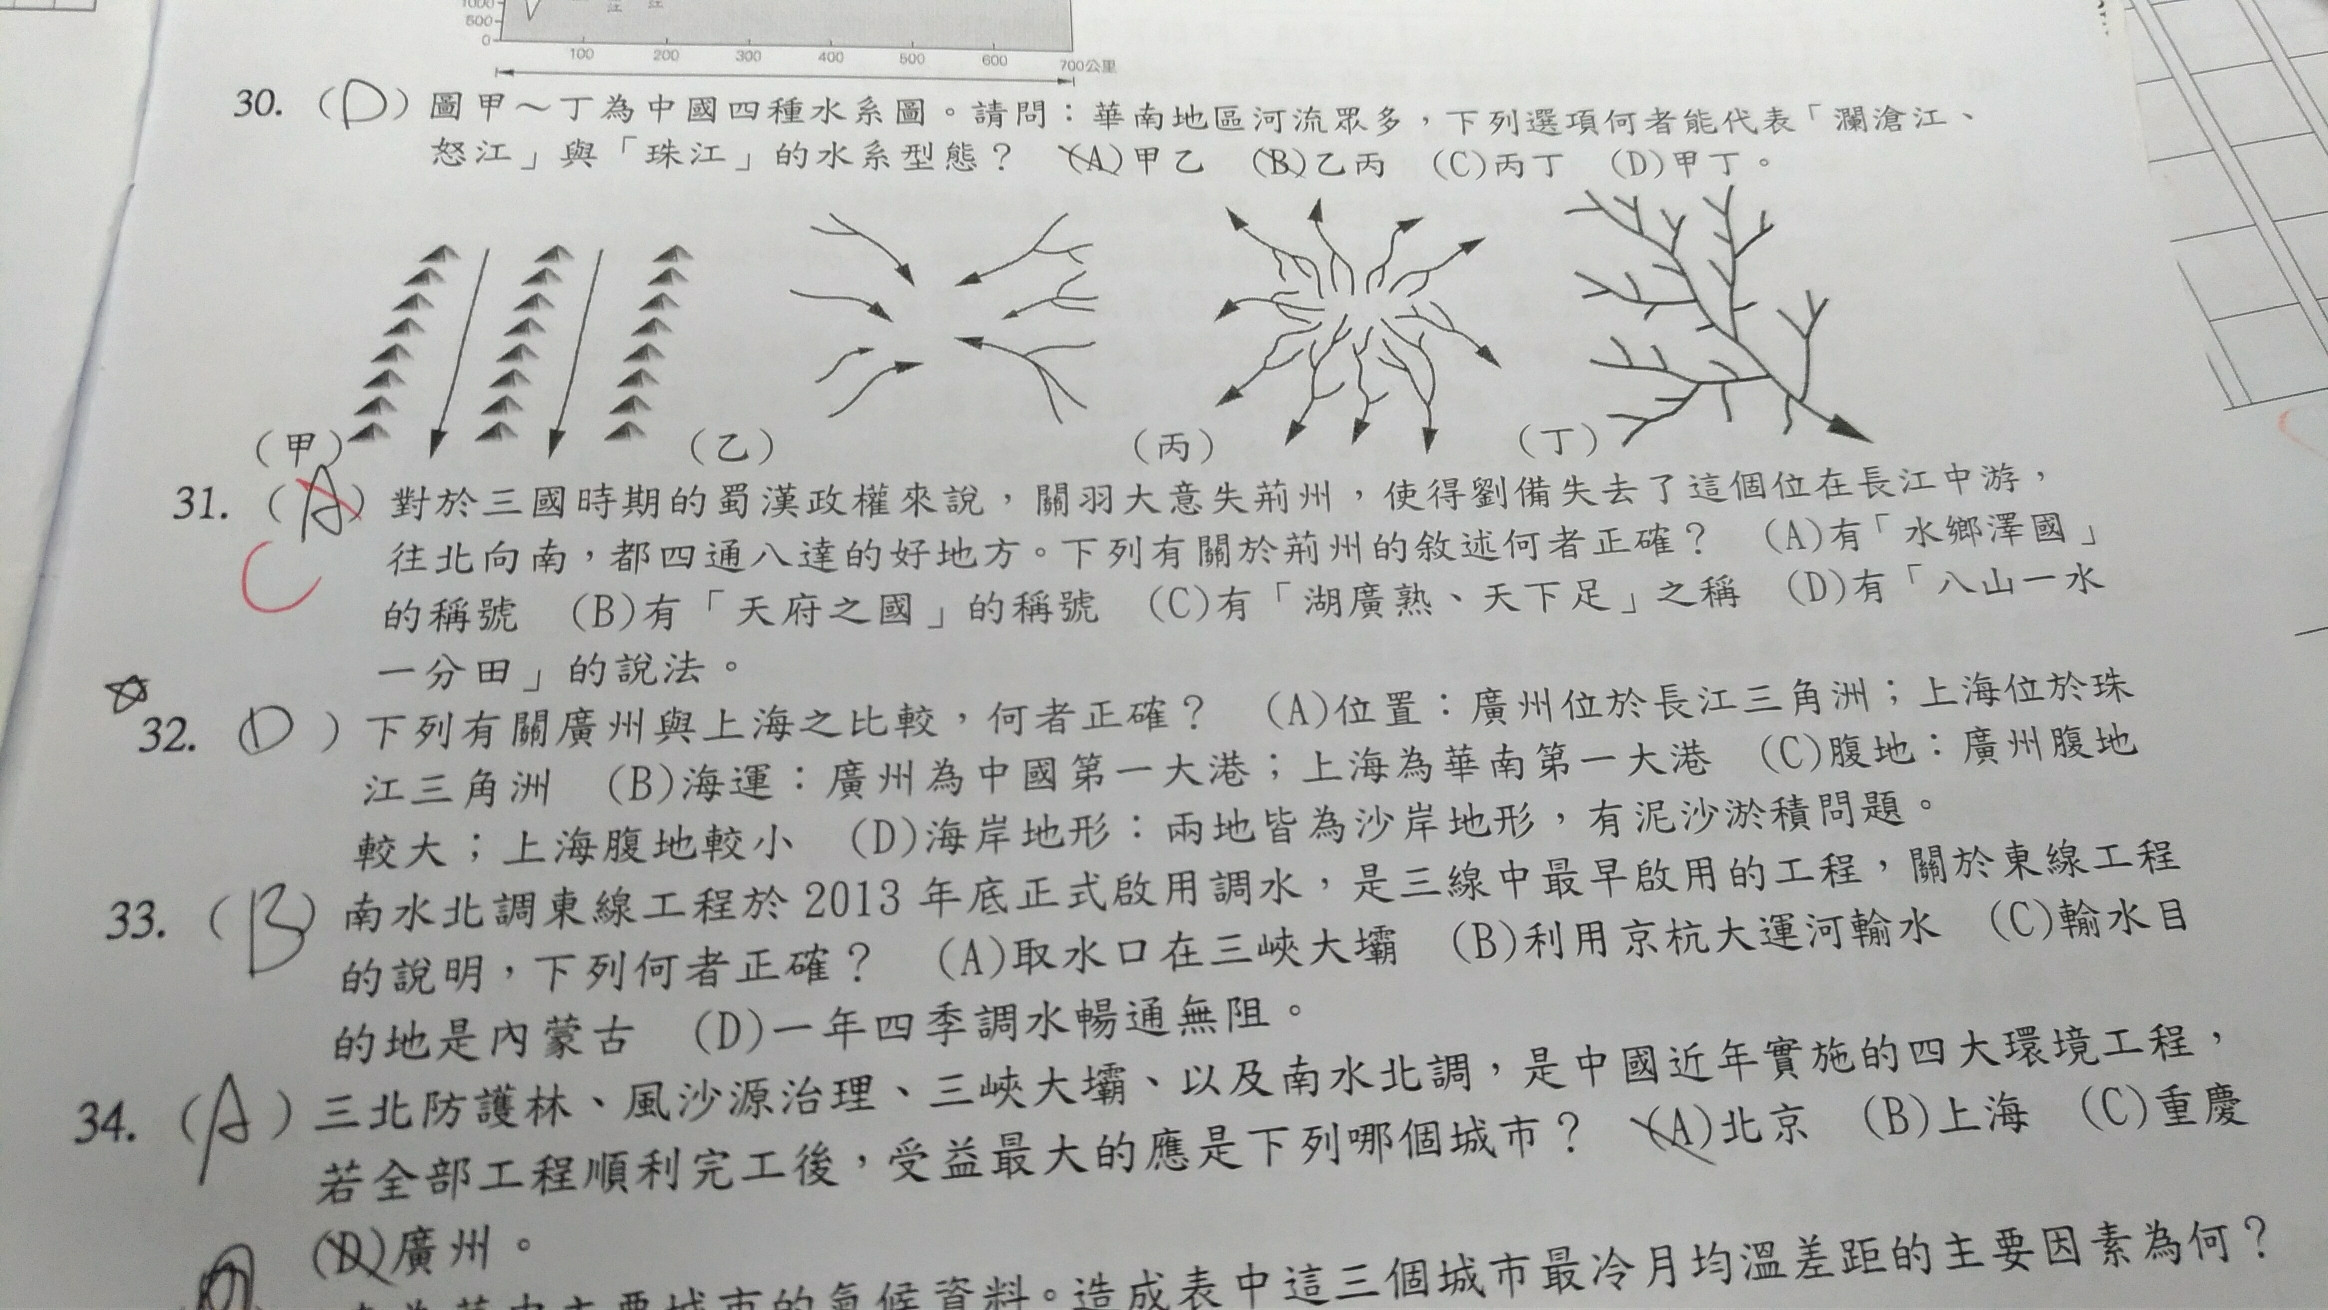 1000
500
0
100 200 300 400 500 600 700公里
江 江
30. (D) 圖甲～丁為中國四種水系圖。請問：華南地區河流眾多，下列選項何者能代表「瀾滄江、
怒江」與「珠江」的水系型態？ (A)甲乙 (B)乙丙 (C)丙丁 (D)甲丁。
(甲) (乙) (丙) (丁)
31. (A) 對於三國時期的蜀漢政權來說，關羽大意失荊州，使得劉備失去了這個位在長江中游，
C 往北向南，都四通八達的好地方。下列有關於荊州的敘述何者正確？ (A)有「水鄉澤國」
的稱號 (B)有「天府之國」的稱號 (C)有「湖廣熟、天下足」之稱 (D)有「八山一水
一分田」的說法。
32. (D) 下列有關廣州與上海之比較，何者正確？ (A)位置：廣州位於長江三角洲；上海位於珠
江三角洲 (B)海運：廣州為中國第一大港；上海為華南第一大港 (C)腹地：廣州腹地
較大；上海腹地較小 (D)海岸地形：兩地皆為沙岸地形，有泥沙淤積問題。
33. (B) 南水北調東線工程於 2013 年底正式啟用調水，是三線中最早啟用的工程，關於東線工程
的說明，下列何者正確？ (A)取水口在三峽大壩 (B)利用京杭大運河輸水 (C)輸水目
的地是內蒙古 (D)一年四季調水暢通無阻。
34. (A) 三北防護林、風沙源治理、三峽大壩、以及南水北調，是中國近年實施的四大環境工程，
若全部工程順利完工後，受益最大的應是下列哪個城市？ (A)北京 (B)上海 (C)重慶
(D)廣州。
主要城市的氣候資料。造成表中這三個城市最冷月均溫差距的主要因素為何？